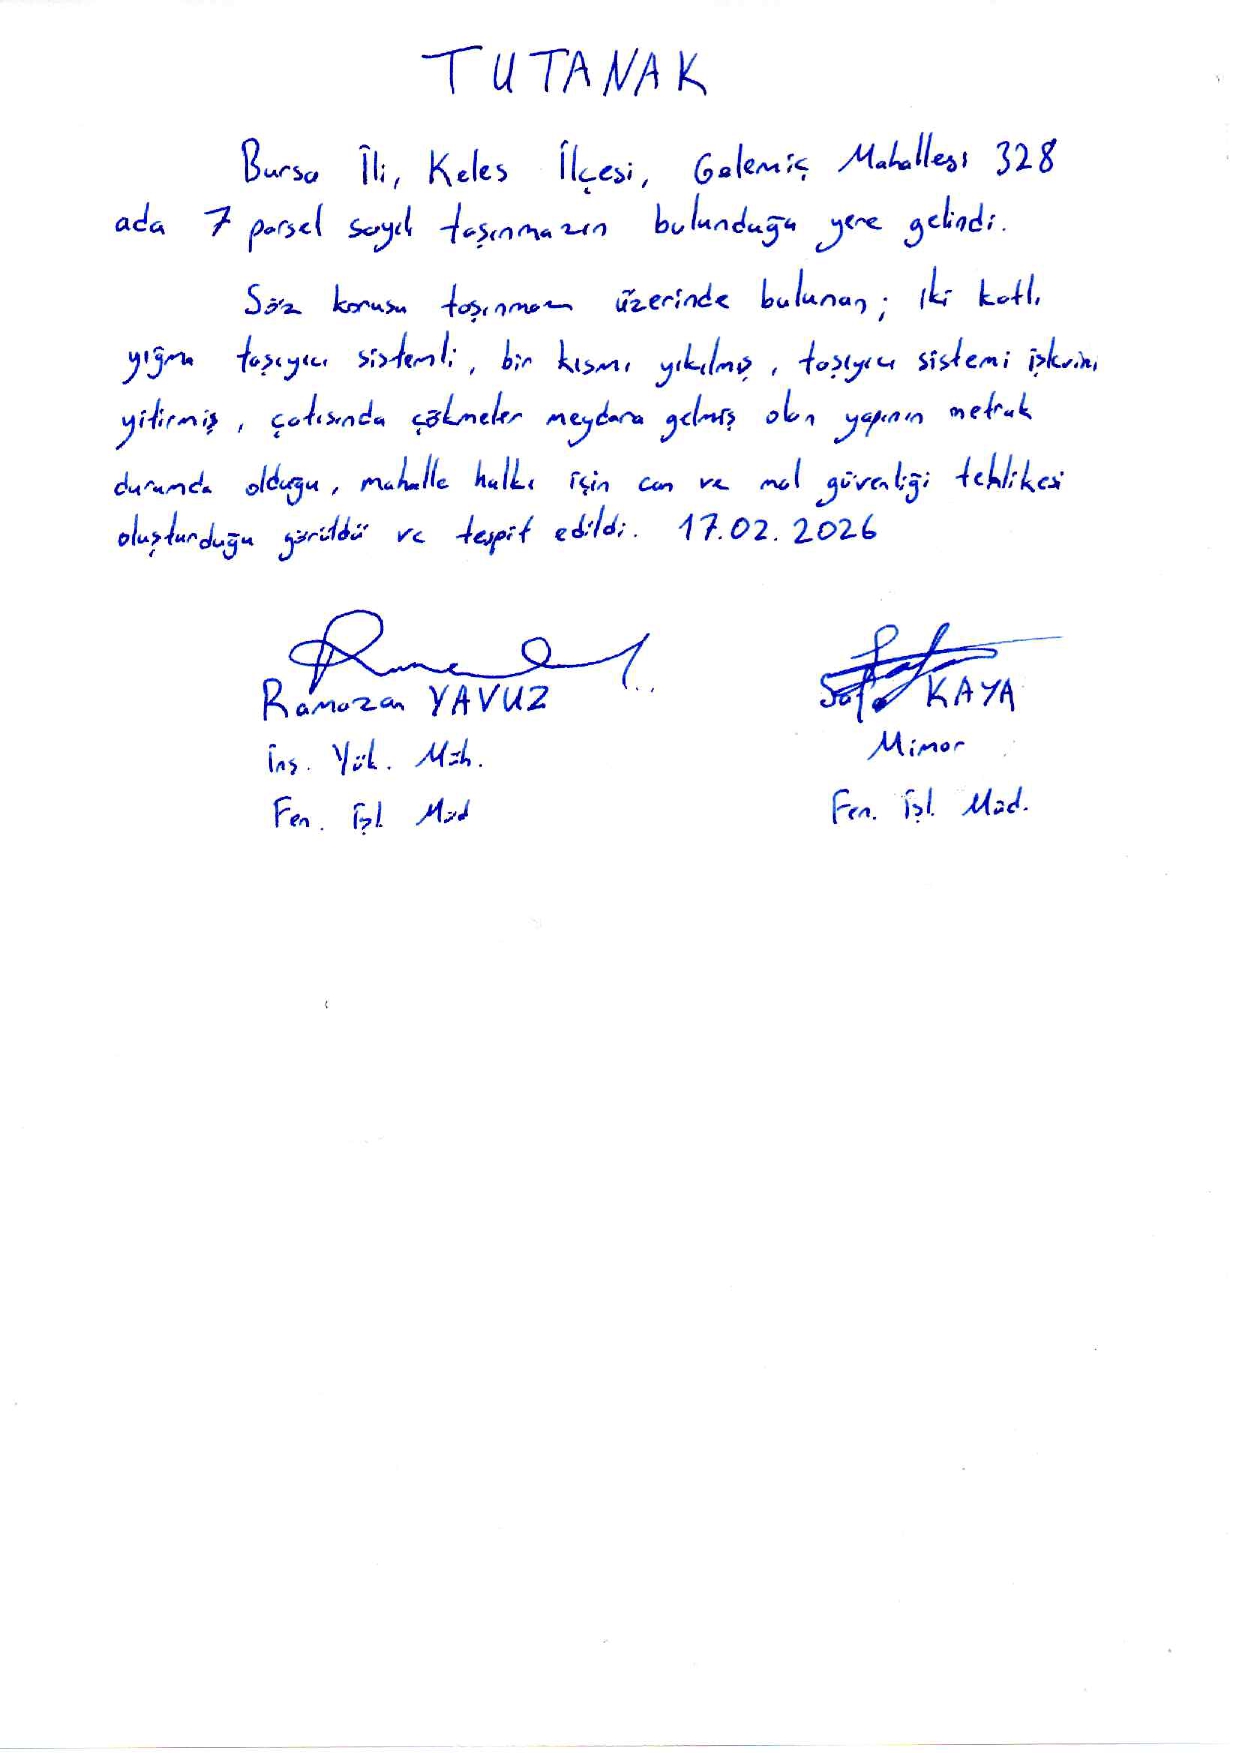 TUTANAK
Bursa İli, Keles İlçesi, Gelemiç Mahallesi 328
ada 7 parsel sayılı taşınmazın bulunduğu yere gelindi.
Söz konusu taşınmaz üzerinde bulunan; iki katlı
yığma taşıyıcı sistemli, bir kısmı yıkılmış, taşıyıcı sistemi işlevini
yitirmiş, çatısında çökmeler meydana gelmiş olan yapının metruk
durumda olduğu, mahalle halkı için can ve mal güvenliği tehlikesi
oluşturduğu görüldü ve tespit edildi. 17.02.2026
Ramazan YAVUZ
İnş. Yük. Müh.
Fen. İşl. Müd
Safa KAYA
Mimar
Fen. İşl. Müd.